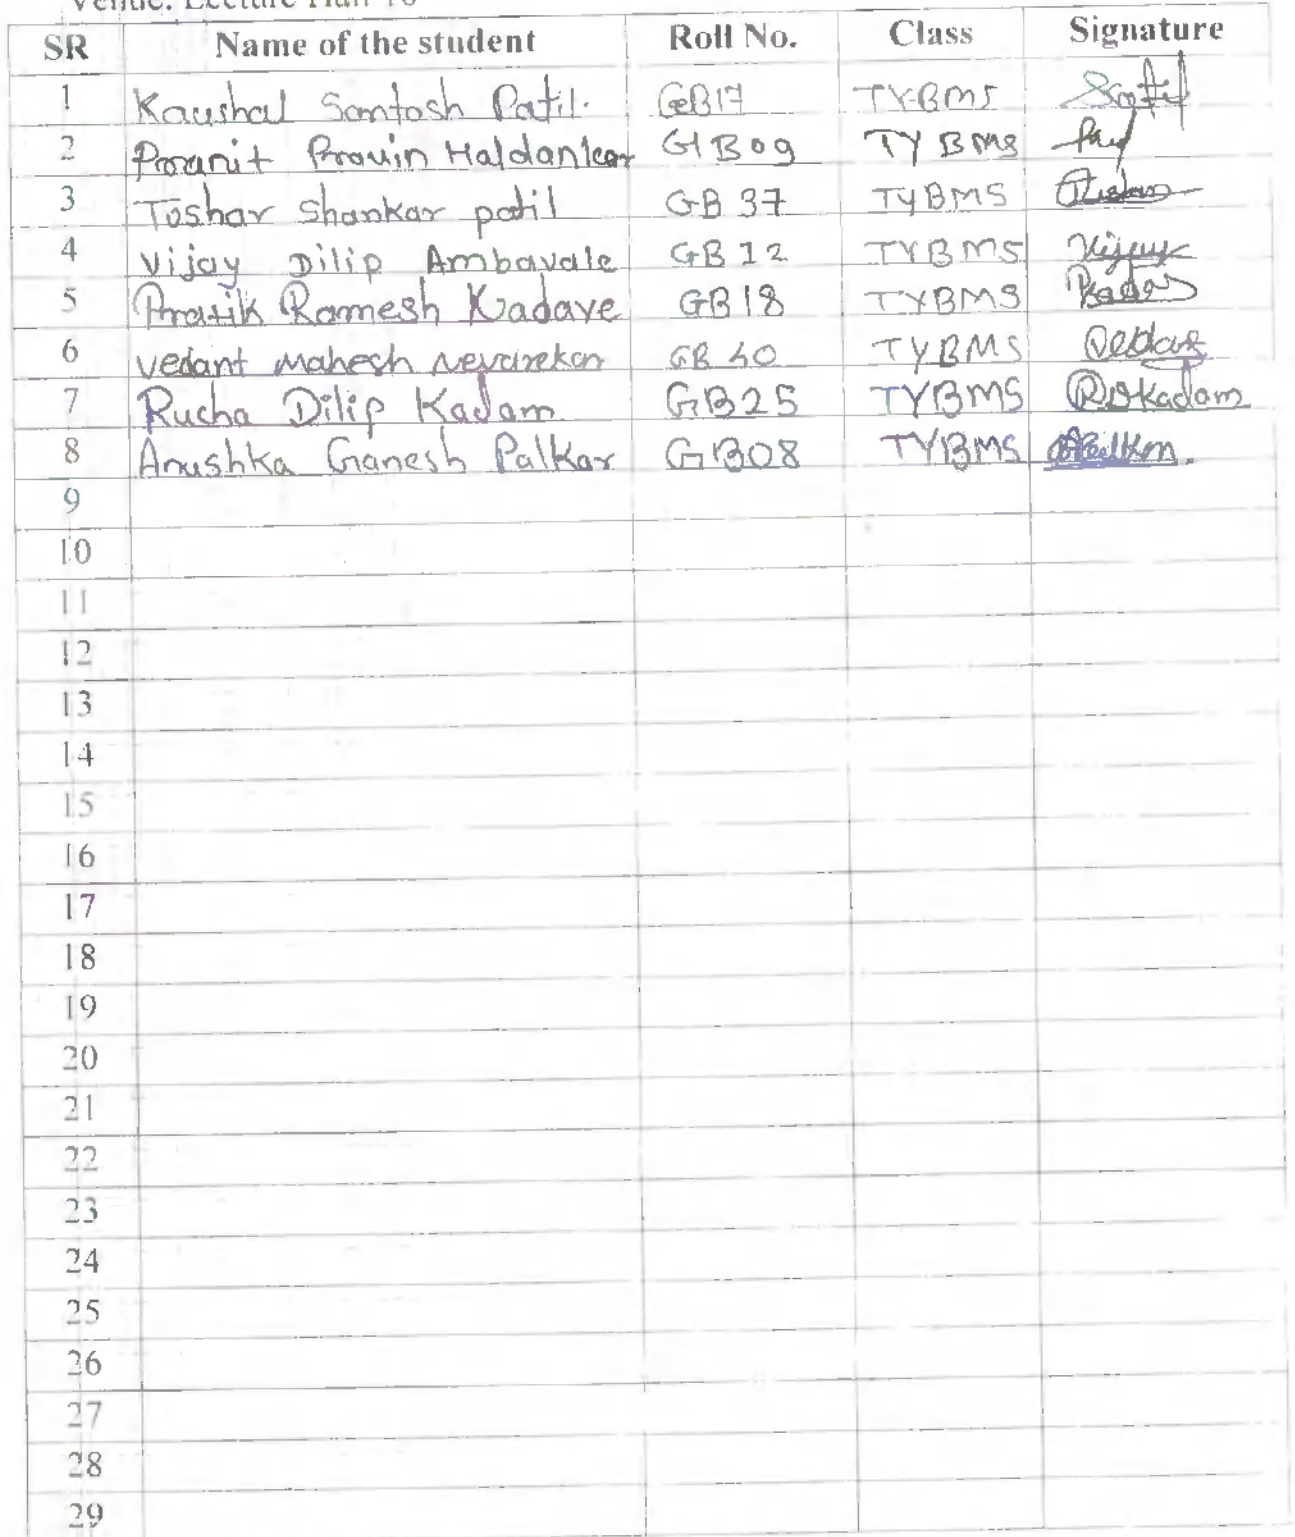 Venue: Lecture Hall 10
SR Name of the student Roll No. Class Signature
1 Kaushal Santosh Patil. GB17 TYBMS
2 Pranit Pravin Haldankar GB09 TYBMS
3 Toshar Shankar patil GB 37 TYBMS
4 Vijay Dilip Ambavale GB 12 TYBMS Vijay
5 Pratik Ramesh Kadave GB 18 TYBMS
6 vedant Mahesh Nevarekar GB 40 TYBMS
7 Rucha Dilip Kadam GB25 TYBMS RDKadam
8 Anushka Ganesh Palkar GB08 TYBMS
9
10
11
12
13
14
15
16
17
18
19
20
21
22
23
24
25
26
27
28
29